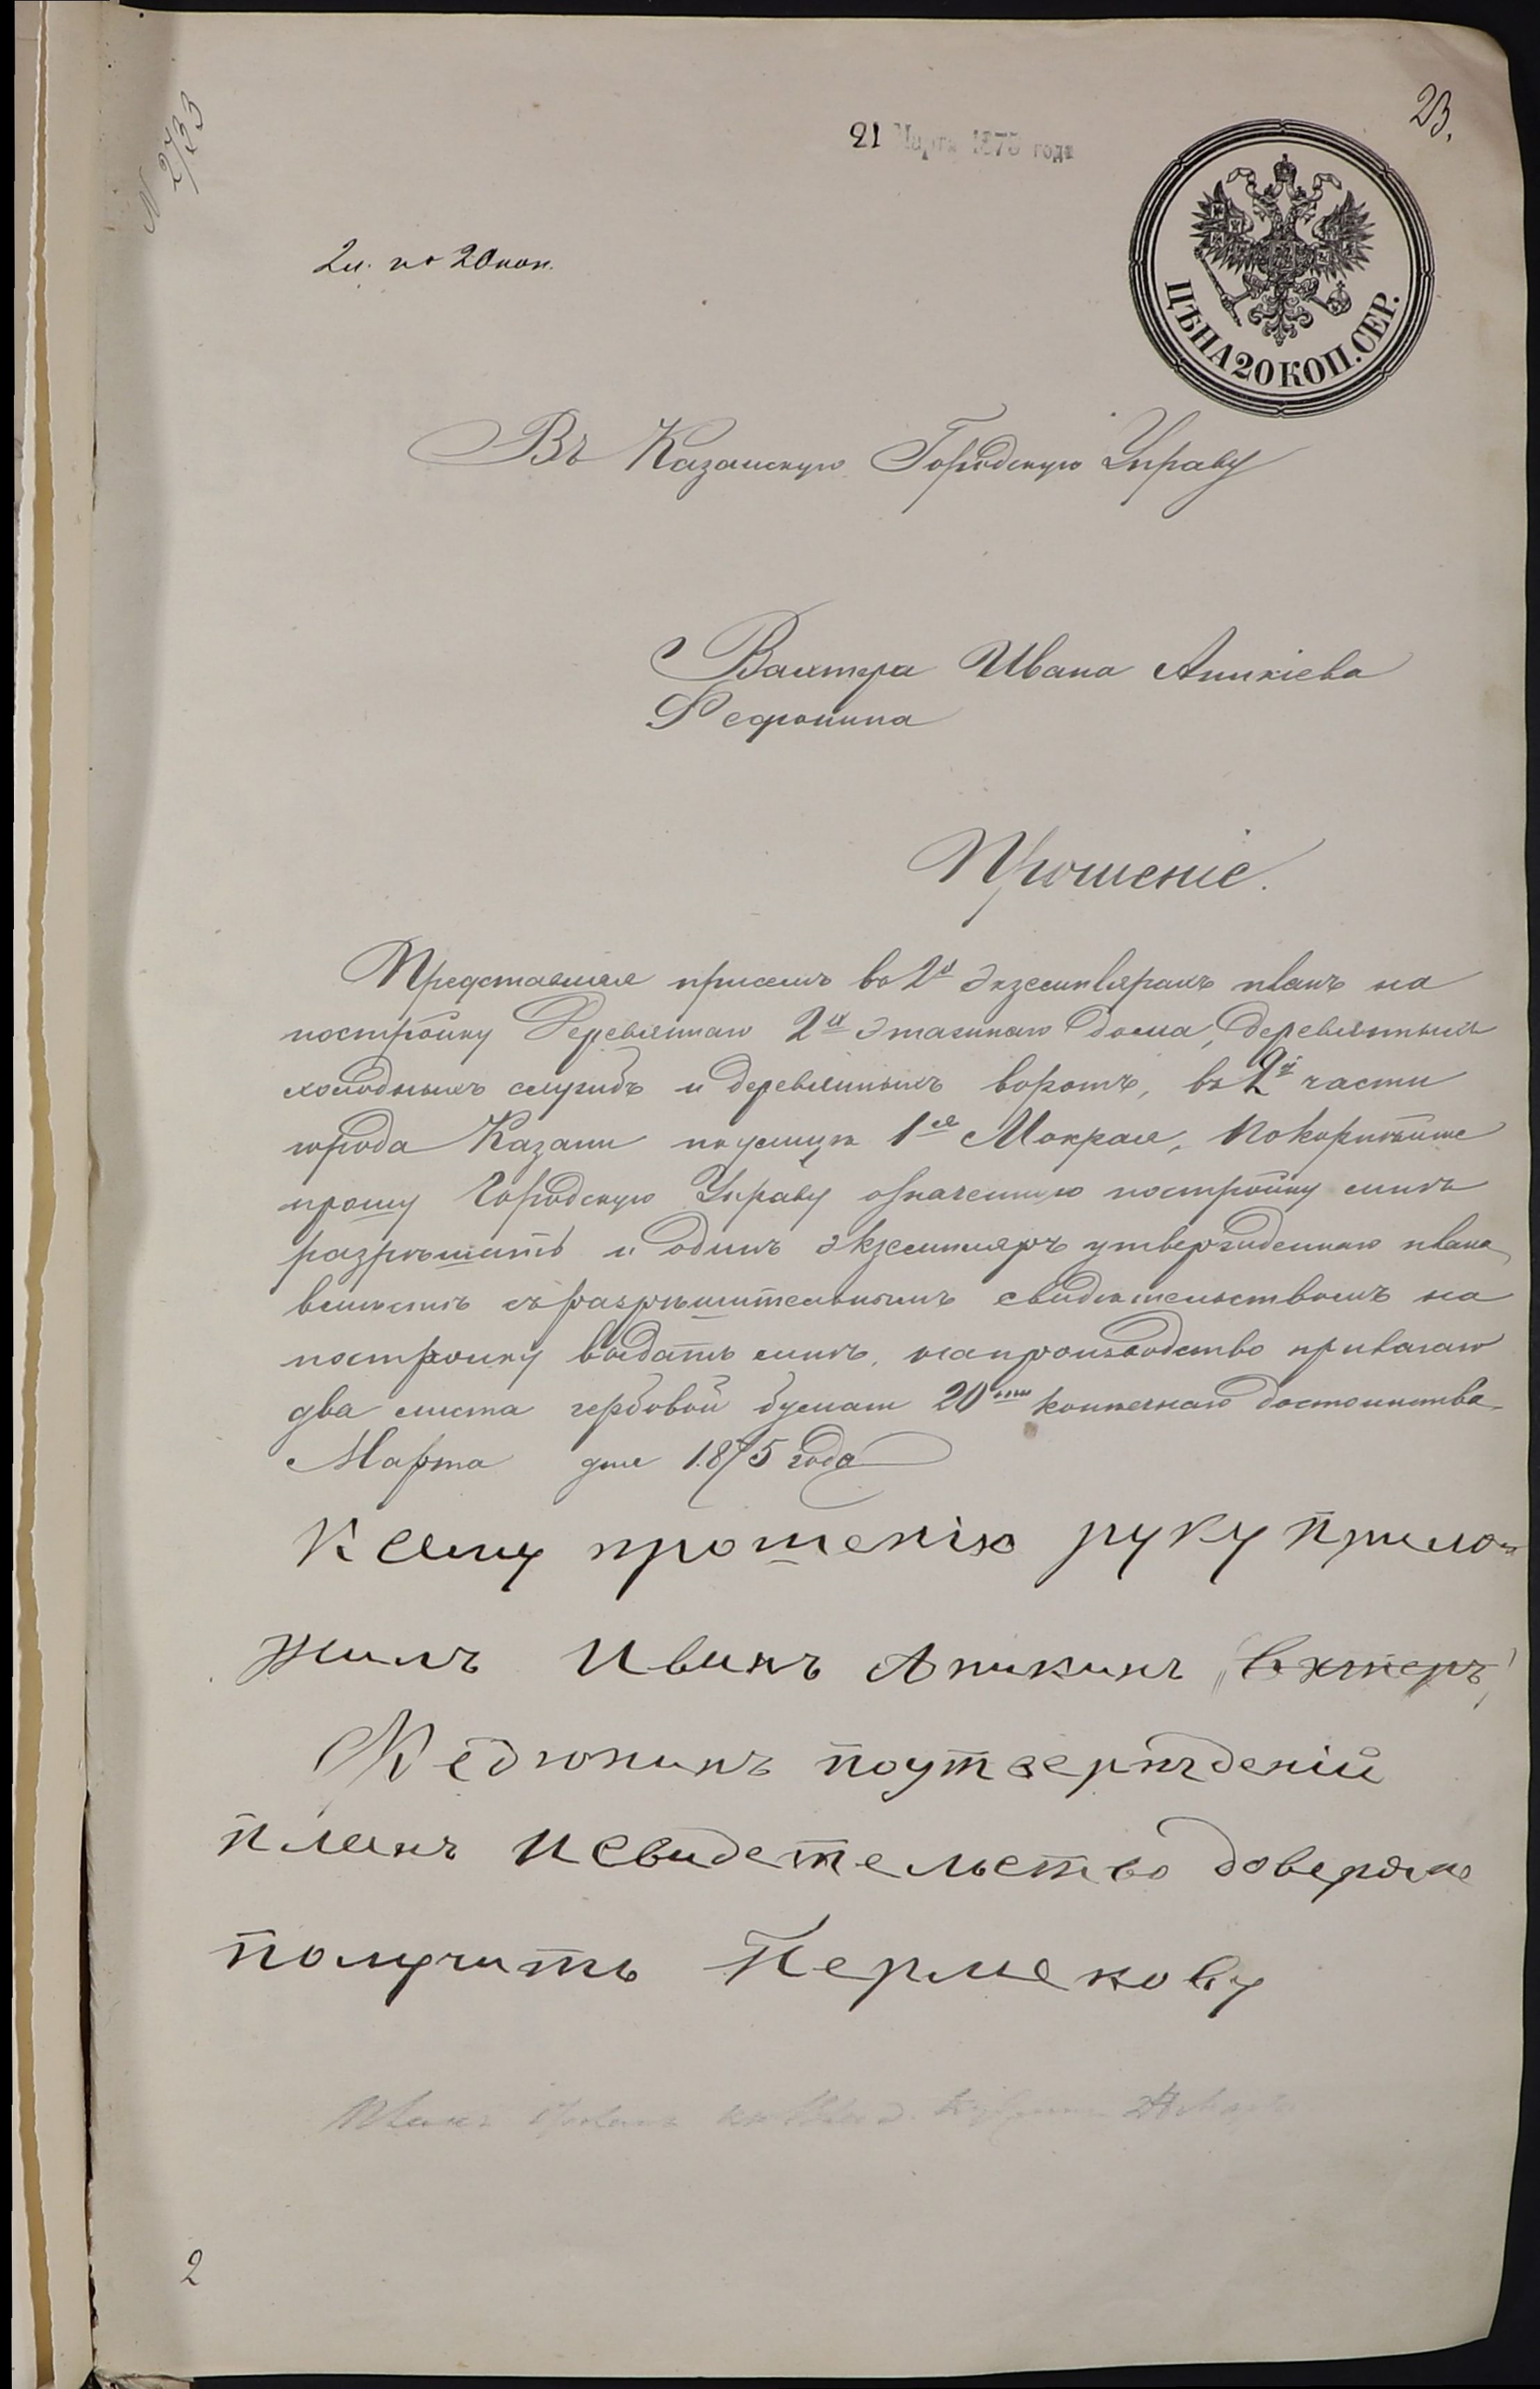 23.
N 2733
21 Марта 1875 года
2 л. по 20 коп.
ЦѢНА 20 КОП. СЕР.
Въ Казанскую Городскую Управу
Вахтера Ивана Аникіева
Федонина
Прошеніе.
Представляя присемъ въ 2х экземплярахъ планъ на
постройку Деревяннаго 2х этажнаго дома, деревянныхъ
холодныхъ службъ и деревянныхъ воротъ, въ 2й части
города Казани по улицѣ 1я Мокрая, покорнѣйше
прошу Городскую Управу означенную постройку мнѣ
разрѣшить и одинъ экземпляръ утвержденнаго плана
вмѣстѣ съ разрѣшительнымъ свидѣтельствомъ на
постройку выдать мнѣ, на производство прилагаю
два листа гербовой бумаги 20ти копѣечнаго достоинства
Марта дня 1875 года
К сему прошенію руку прило-
жилъ Иванъ Аникинъ вхтеръ
Федонинъ поутверждений
планъ исвидетельство доверяю
получить Пермекову
Планъ
2